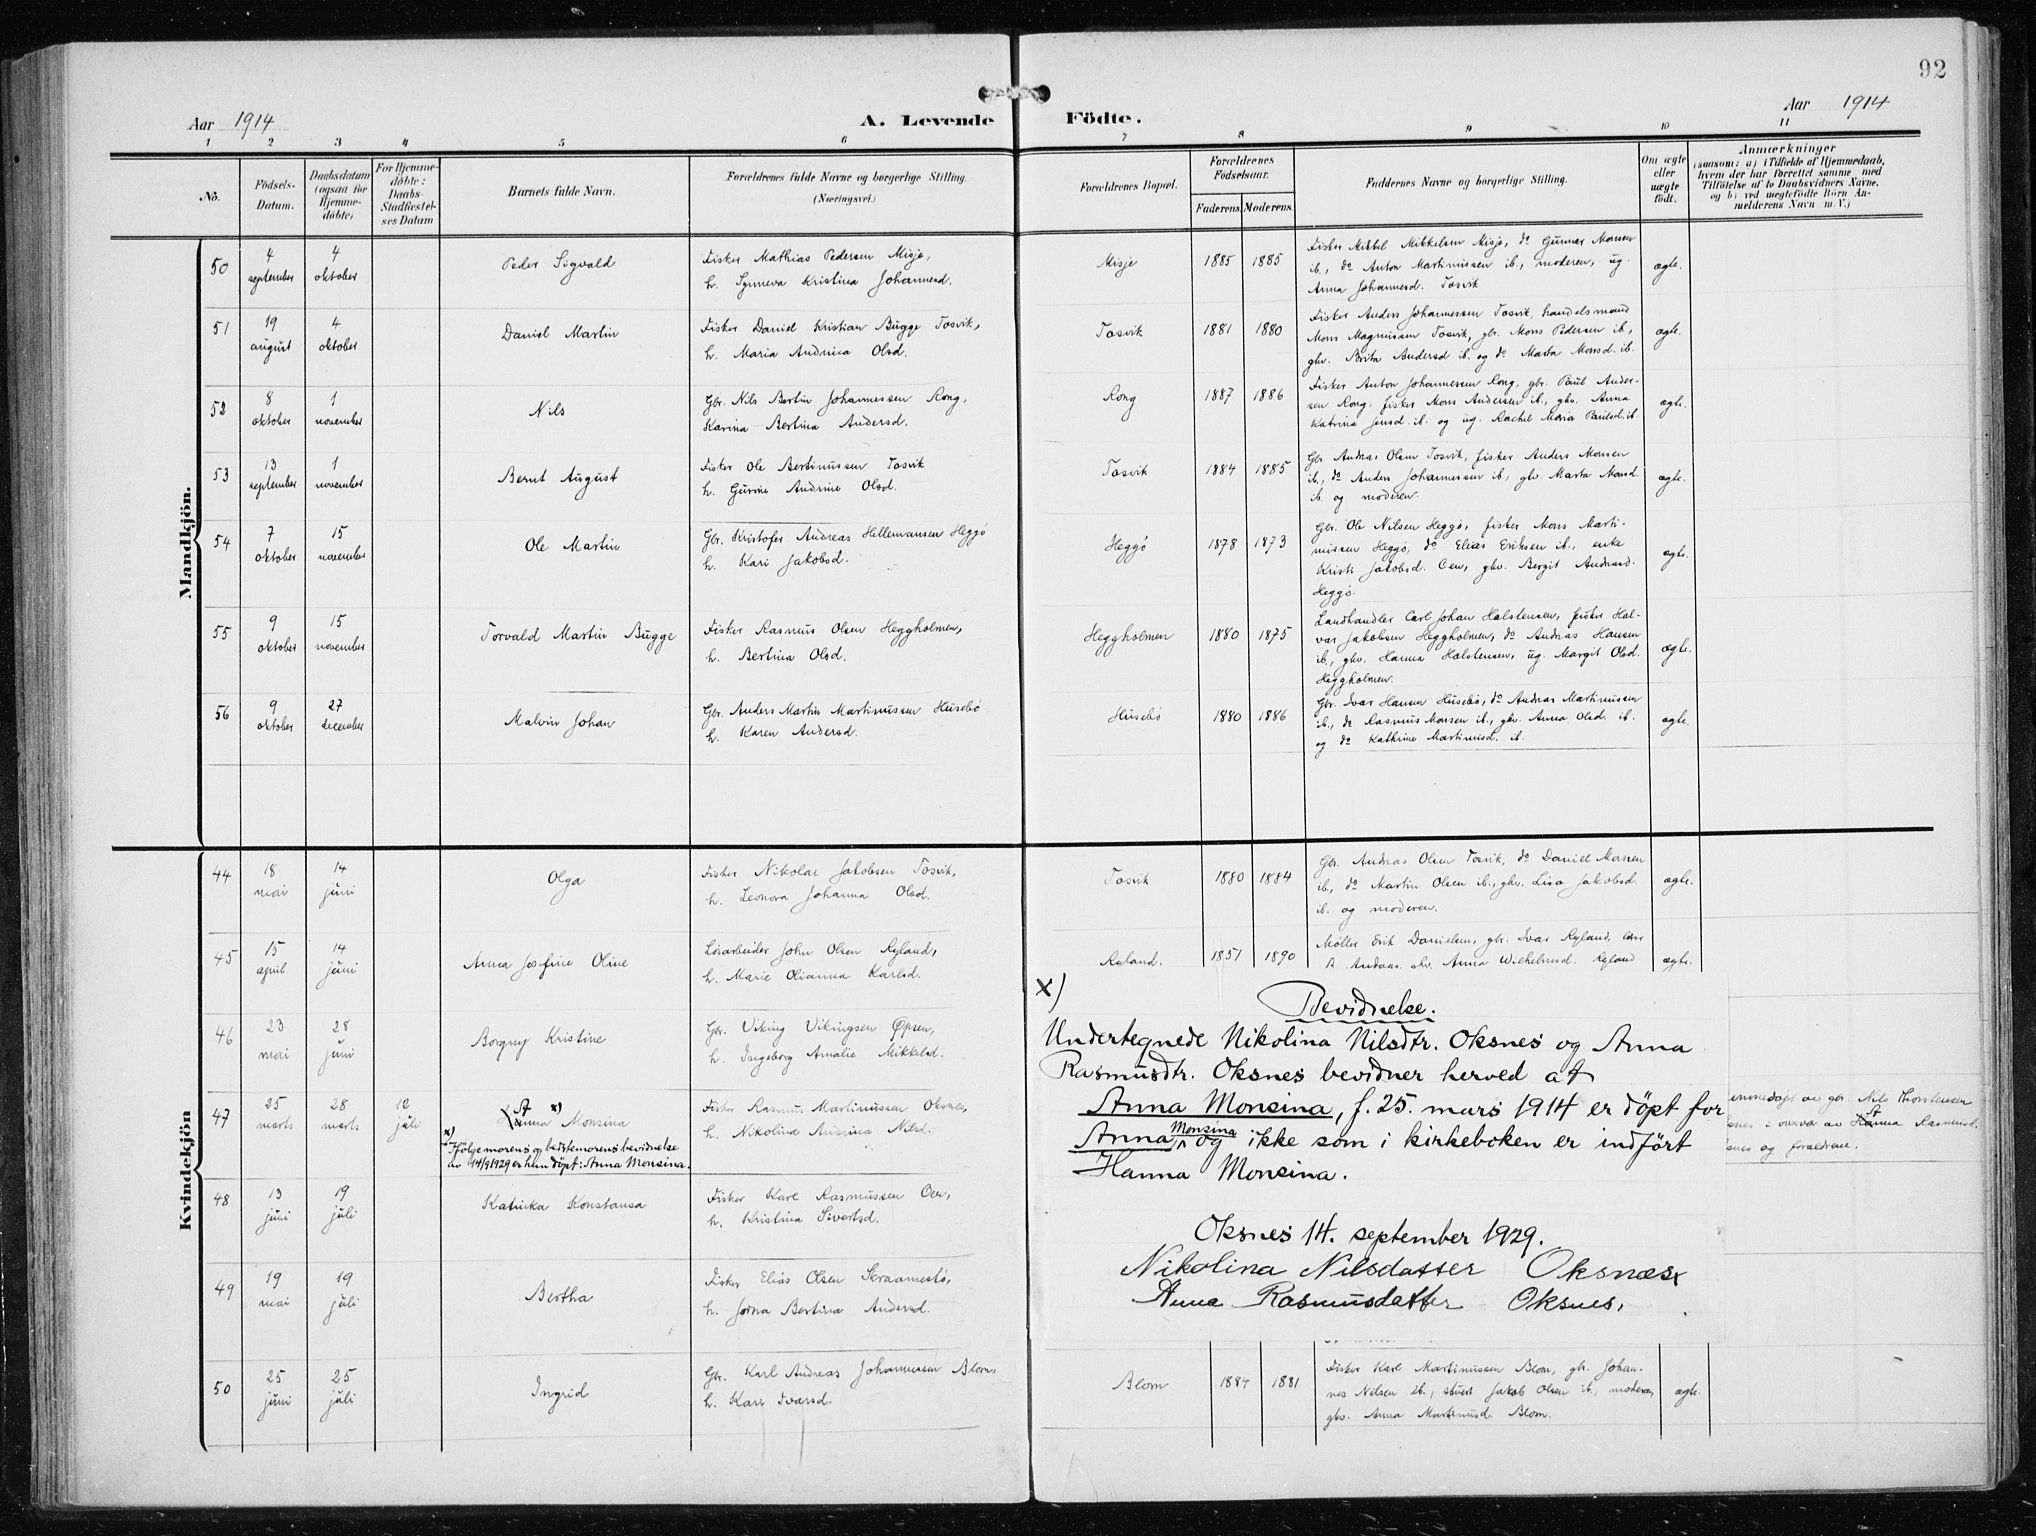 92
Aar 1914
A. Levende Födte.
Aar 1914
1 2 3 4 5 6 7 8 9 10 11
No.
Födsels-
Datum.
Daabsdatum
(ogsaa for
Hjemme-
döbte)
For Hjemme-
döbte:
Daabs-
Stadfæstel-
ses Datum
Barnets fulde Navn.
Forældrenes fulde Navne og borgerlige Stilling.
(Næringsvei.)
Forældrenes Bopæl.
Forældrenes
Födselsaar.
Faderens. Moderens.
Faddernes Navne og borgerlige Stilling.
Om ægte
eller
uægte
födt.
Anmærkninger
(saasom: a) i Tilfælde af Hjemmedaab,
hvem der har forrettet samme med
Tilföielse af to Daabsvidners Navne,
og b) ved uægtefödte Börn An-
melderens Navn m. V.)
Mandkjön.
50
4
september
4
oktober
Peder Sigvald
Fisker Mathias Pedersen Misje,
h. Synneva Kristina Johannesd.
Misje
1885 1885
Fisker Mikkel Mikkelsen Misje, do Gunnar Monsen
ib., do Anton Martinussen ib., moderen, ug.
Anna Johannesd. Tosvik
ægte.
51
19
august
4
oktober
Daniel Martin
Fisker Daniel Kristian Bugge Tosvik,
h. Maria Andrica Olsd.
Tosvik
1881 1880
Fisker Anders Johannessen Tosvik, handelsmand
Mons Magnussen Tosvik, gbr. Mons Pedersen ib.,
ghv. Brita Andersd ib. og do Marta Monsd. ib.
ægte.
52
8
oktober
1
november
Nils
Gbr. Nils Bertin Johannessen Rong,
Karina Bertina Andersd.
Rong
1887 1886
Fisker Anton Johannessen Rong, gbr. Paul Ander-
sen Rong, fisker Mons Andersen ib., ghv. Anna
Katrina Jensd. ib. og ug. Rachel Maria Paulsd. ib.
ægte.
53
13
september
1
november
Bernt August
Fisker Ole Bertinussen Tosvik
h. Gurine Andrine Olsd.
Tosvik
1884 1885
Gbr. Andreas Olsen Tosvik, fisker Anders Monsen
ib., do Anders Johannessen ib., ghv. Marta Monsd.
ib. og moderen.
ægte.
54
7
oktober
15
november
Ole Martin
Gbr. Kristofer Andreas Hellemansen Heggö
h. Kari Jakobsd.
Heggö
1878 1873
Gbr. Ole Nilsen Heggö, fisker Mons Marti-
nussen Heggö, do Elias Eriksen ib., enke
Kristi Jakobsd. Oen, ghv. Bergit Andreasd.
Heggö.
ægte.
55
9
oktober
15
november
Torvald Martin Bugge
Fisker Rasmus Olsen Heggholmen,
h. Bertina Olsd.
Heggholmen
1880 1875
Landhandler Carl Johan Halstensen, fisker Hal-
var Jakobsen Heggholmen, do Andreas Hansen
ib., ghv. Hanna Halstensen, ug. Margit Olsd.
Heggholmen.
ægte.
56
9
oktober
27
december
Malvin Johan
Gbr. Anders Martin Martinussen Husebö
h. Karen Andersd.
Husebö
1880 1886
Gbr. Ivar Hansen Husebö, do Andreas Martinussen
ib., do Rasmus Monsen ib., ghv. Anna Olsd. ib.
og do Kathrine Martinusd. ib.
ægte.
Kvindekjön
44
18
mai
14
juni
Olga
Fisker Nikolai Jakobsen Tosvik,
h. Leonora Johanna Olsd.
Tosvik
1880 1884
Gbr. Andreas Olsen Tosvik, do Daniel Monsen
ib., do Martin Olsen ib., ghv. Lisa Jakobsd.
ib. og moderen.
ægte.
45
15
april
14
juni
Anna Josefine Oline
Lösarbeider John Olsen Ryland,
h. Marie Olianna Karlsd.
Ryland.
1851 1890
Möller Erik Danielsen, gbr. Ivar Ryland,
ghv. Anna Wilhelmsd. Ryland
ægte.
46
23
mai
28
juni
Borgny Kristine
Gbr. Viking Vikingsen Øpsen,
h. Ingeborg Amalie Mikkelsd.
47
25
marts
28
marts
12
juli
Anna x) Monsina
x) Ifölge morens og bedstemorens bevidnelse
av 14/9 1929 er hun döpt: Anna Monsina.
Fisker Rasmus Martinussen Oksnes,
h. Nikolina Andrina Nilsd.
emmedöpt av gbr. Nils Thorstensen
snes i overvær av Hanna Rasmusd.
snes og forældrene.
48
13
juni
19
juli
Katinka Konstansa
Fisker Karl Rasmussen Oen,
h. Kristina Sivertsd.
49
19
mai
19
juli
Bertha
Fisker Elias Olsen Skraamestö,
h. Jorna Bertina Andersd.
50
25
juni
25
juli
Ingrid
Gbr. Karl Andreas Johannessen Blom,
h. Kari Ivarsd.
Blom
1884 1881
Fisker Karl Martinussen Blom, gbr. Johan-
nes Nilsen ib., stuert Jakob Olsen ib., moderen,
ghv. Anna Martinusd. Blom.
ægte.
x)
Bevidnelse.
Undertegnede Nikolina Nilsdtr. Oksnes og Anna
Rasmusdtr. Oksnes bevidner herved at
Anna Monsina, f. 25. mars 1914 er döpt for
Anna Monsina og ikke som i kirkeboken er indfört
Hanna Monsina.
Oksnes 14. september 1929.
Nikolina Nilsdatter Oksnæs
Anna Rasmusdatter Oksnes.